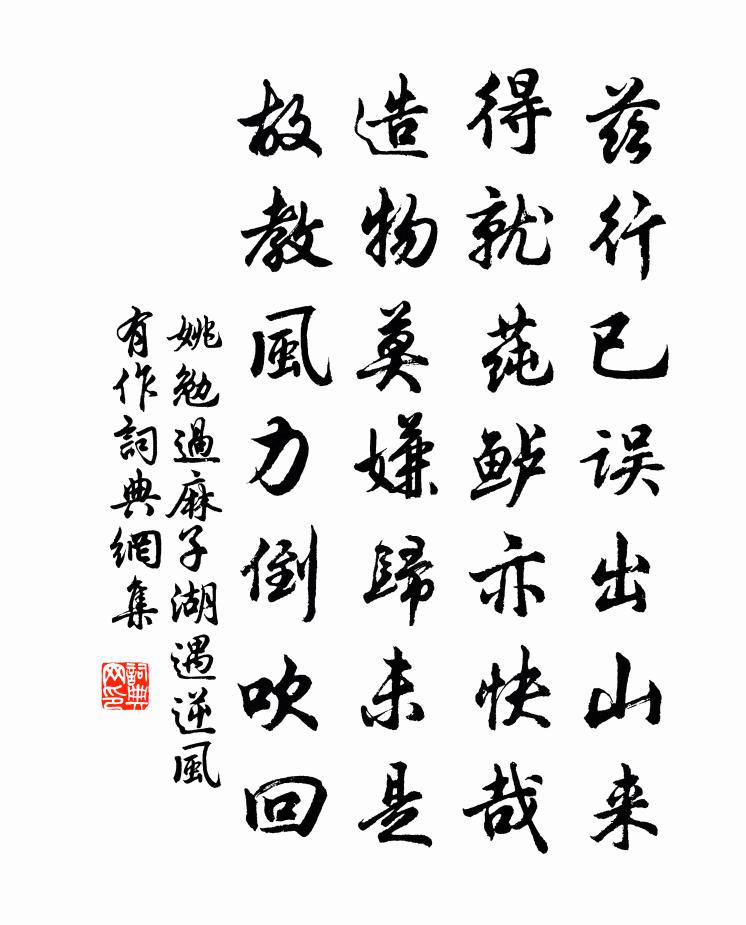 茲行已误出山来
得就莼鲈亦快哉
造物莫嫌歸未是
故教風力倒吹回
姚勉過麻子湖遇逆風
有作詞典網集
詞典网印